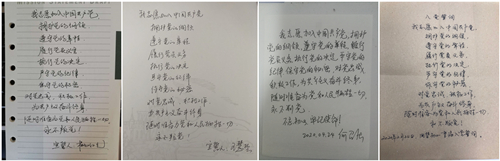 我志愿加入中国共产党
拥护党的纲领
遵守党的章程
履行党员义务
执行党的决定
严守党的纪律
保守党的秘密
对党忠诚 积极工作
为共产主义奋斗终身
随时准备为党和人民牺牲一切
永不叛党
宣誓人
我志愿加入中国共产党
拥护党的纲领
遵守党的章程
履行党员义务
执行党的决定
严守党的纪律
保守党的秘密
对党忠诚 积极工作
为共产主义奋斗终身
随时准备为党和人民牺牲一切
永不叛党
宣誓人
我志愿加入中国共产党,拥护
党的纲领,遵守党的章程,履行
党员义务,执行党的决定,严守党的
纪律,保守党的秘密,对党忠诚,
积极工作,为共产主义奋斗终身,
随时准备为党和人民牺牲一切,
永不叛党。
入党誓词
我志愿加入中国共产党
拥护党的纲领
遵守党的章程
履行党员义务
执行党的决定
严守党的纪律
保守党的秘密
对党忠诚 积极工作
为共产主义奋斗终身
随时准备为党和人民牺牲一切
永不叛党